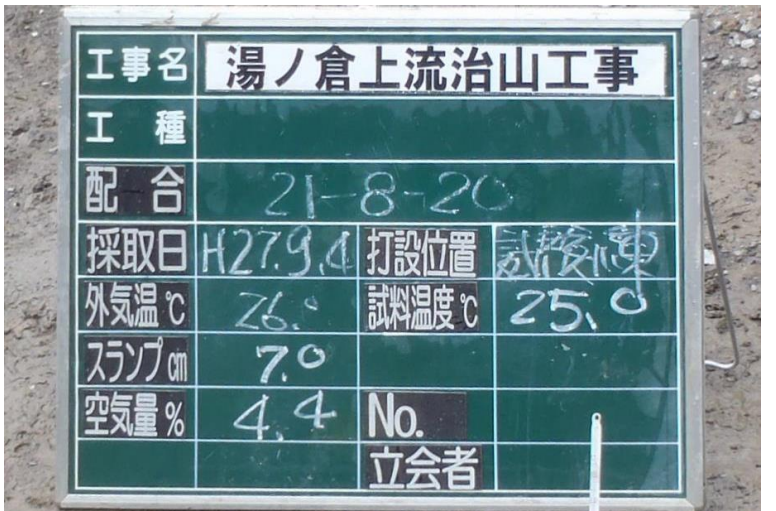 工事名 湯ノ倉上流治山工事
工種
配合 21-8-20
採取日 H27.9.4 打設位置 試験練
外気温℃ 26.0 試料温度℃ 25.0
スランプcm 7.0
空気量% 4.4 No.
立会者